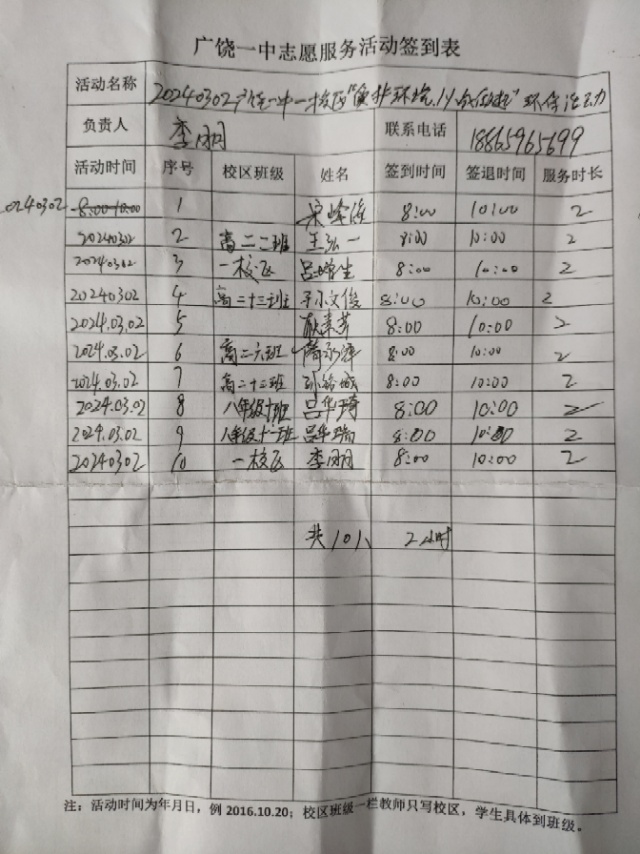 广饶一中志愿服务活动签到表
活动名称 20240302广饶一中一校区"保护环境,从我做起"环保活动
负责人 李明 联系电话 18865965699
活动时间 序号 校区班级 姓名 签到时间 签退时间 服务时长
20240302 8:00-10:00 1 8:00 10:00 2
20240302 2 高二二班 王弘一 8:00 10:00 2
20240302 3 一校区 8:00 10:00 2
20240302 4 高二十三班 8:00 10:00 2
2024.03.02 5 8:00 10:00 2
2024.03.02 6 高二六班 8:00 10:00 2
2024.03.02 7 高二十三班 8:00 10:00 2
2024.03.02 8 八年级十班 吕华琦 8:00 10:00 2
2024.03.02 9 八年级十一班 吕华瑞 8:00 10:00 2
20240302 10 一校区 李明 8:00 10:00 2
共10人 2小时
注:活动时间为年月日,例 2016.10.20;校区班级一栏教师只写校区,学生具体到班级。